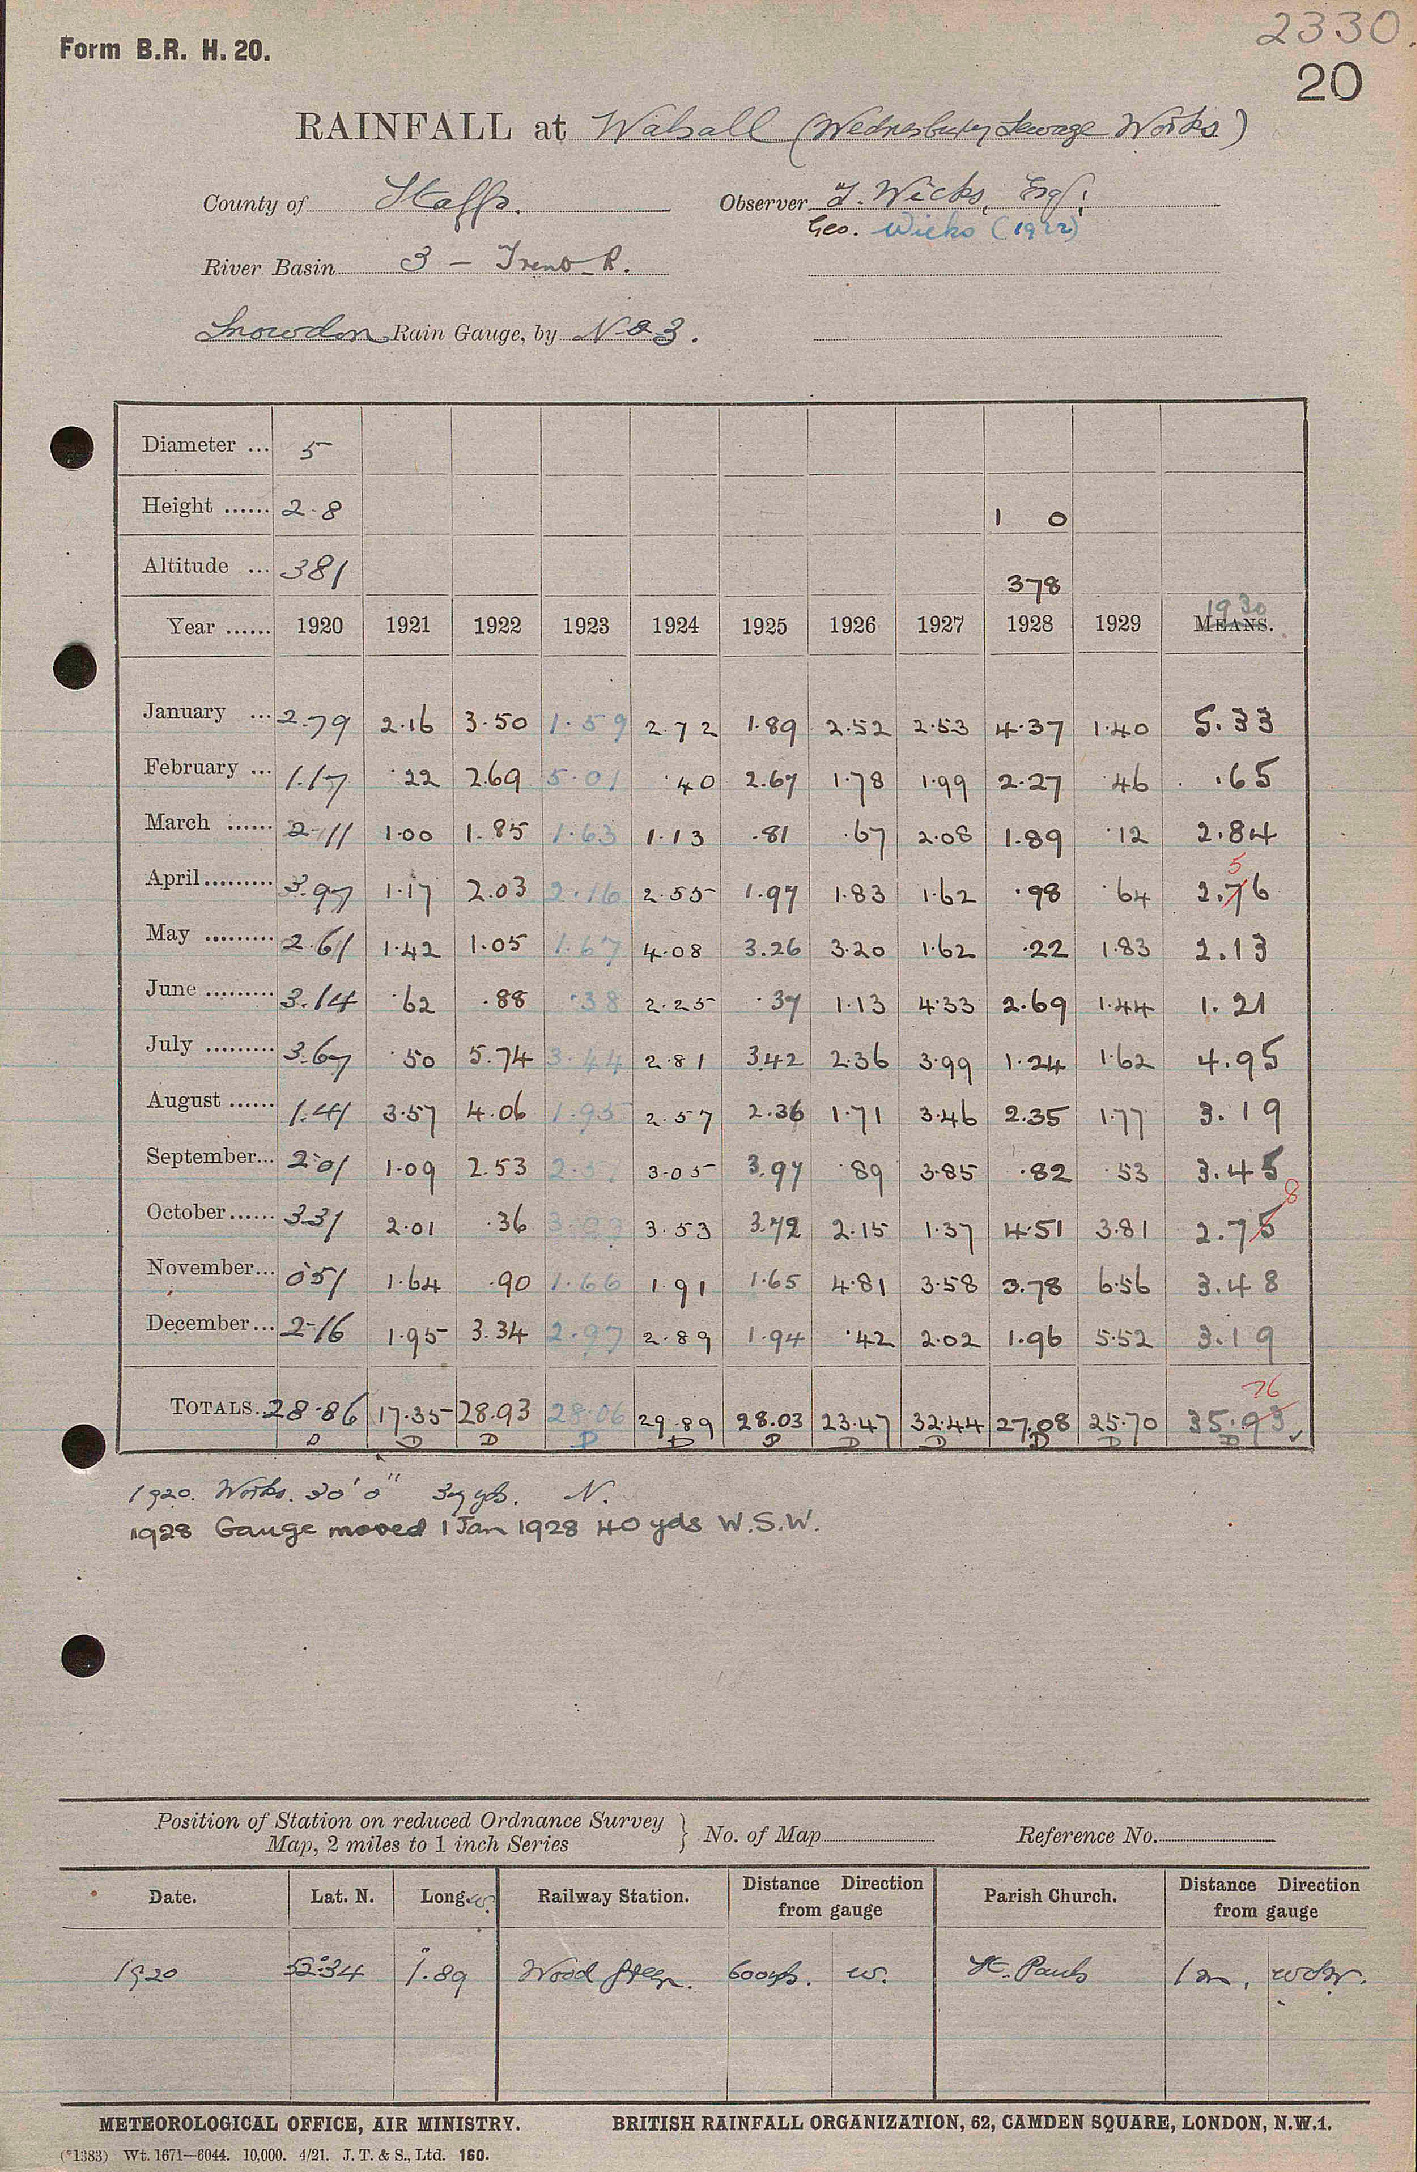 2330.
Form B.R. H. 20.
20
RAINFALL at Walsall (Wednesbury Sewage Works)
County of Staffs. Observer T. Wicks, Esq.
Geo. Wicks (1922)
River Basin 3 - Trent R.
Snowdon Rain Gauge, by N & Z.
Diameter ... 5
Height ...... 2-8 1 0
Altitude ... 381 378
Year ...... 1920 1921 1922 1923 1924 1925 1926 1927 1928 1929 MEANS. 1930
January ... 2.79 2.16 3.50 1.59 2.72 1.89 2.52 2.53 4.37 1.40 5.33
February ... 1.17 .22 2.69 5.01 .40 2.67 1.78 1.99 2.27 .46 .65
March ...... 2.11 1.00 1.85 1.63 1.13 .81 .67 2.08 1.89 .12 2.84
5
April ......... 3.97 1.17 2.03 2.16 2.55 1.97 1.83 1.62 .98 .64 2.76
May ......... 2.61 1.42 1.05 1.67 4.08 3.26 3.20 1.62 .22 1.83 2.13
June ......... 3.14 .62 .88 .38 2.25 .37 1.13 4.33 2.69 1.44 1.21
July ......... 3.67 .50 5.74 3.44 2.81 3.42 2.36 3.99 1.24 1.62 4.95
August ...... 1.41 3.57 4.06 1.95 2.57 2.36 1.71 3.46 2.35 1.77 3.19
September... 2.01 1.09 2.53 3.05 3.97 .89 3.85 .82 .53 3.45
8
October ...... 3.31 2.01 .36 3.53 3.72 2.15 1.37 4.51 3.81 2.75
November... 0.51 1.64 .90 1.66 1.91 1.65 4.81 3.58 3.78 6.56 3.48
December... 2.16 1.95 3.34 2.97 2.89 1.94 .42 2.02 1.96 5.52 3.19
76
TOTALS.. 28.86 17.35 28.93 28.06 29.89 28.03 23.47 32.44 27.08 25.70 35.93 ✓
D D D D D D D D D D D
1920. Works. 30' 0" 37 yds. N.
1928 Gauge moved 1 Jan 1928 40 yds W.S.W.
Position of Station on reduced Ordnance Survey
Map, 2 miles to 1 inch Series } No. of Map Reference No.
Date. Lat. N. Long. W. Railway Station. Distance Direction from gauge Parish Church. Distance Direction from gauge
1920 52°34 1°.89 Wood Green. 600 yds. W. St. Pauls 1 m, WSW.
METEOROLOGICAL OFFICE, AIR MINISTRY. BRITISH RAINFALL ORGANIZATION, 62, CAMDEN SQUARE, LONDON, N.W.1.
(*1383) Wt. 1671—6044. 10,000. 4/21. J. T. & S., Ltd. 160.